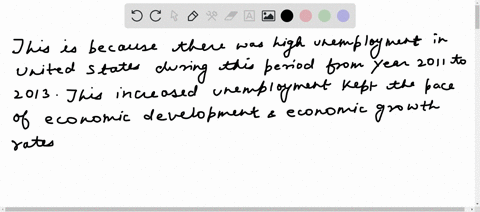 This is because there was high unemployment in
United States during this period from year 2011 to
2013. This increased unemployment kept the pace
of economic development & economic growth
rates